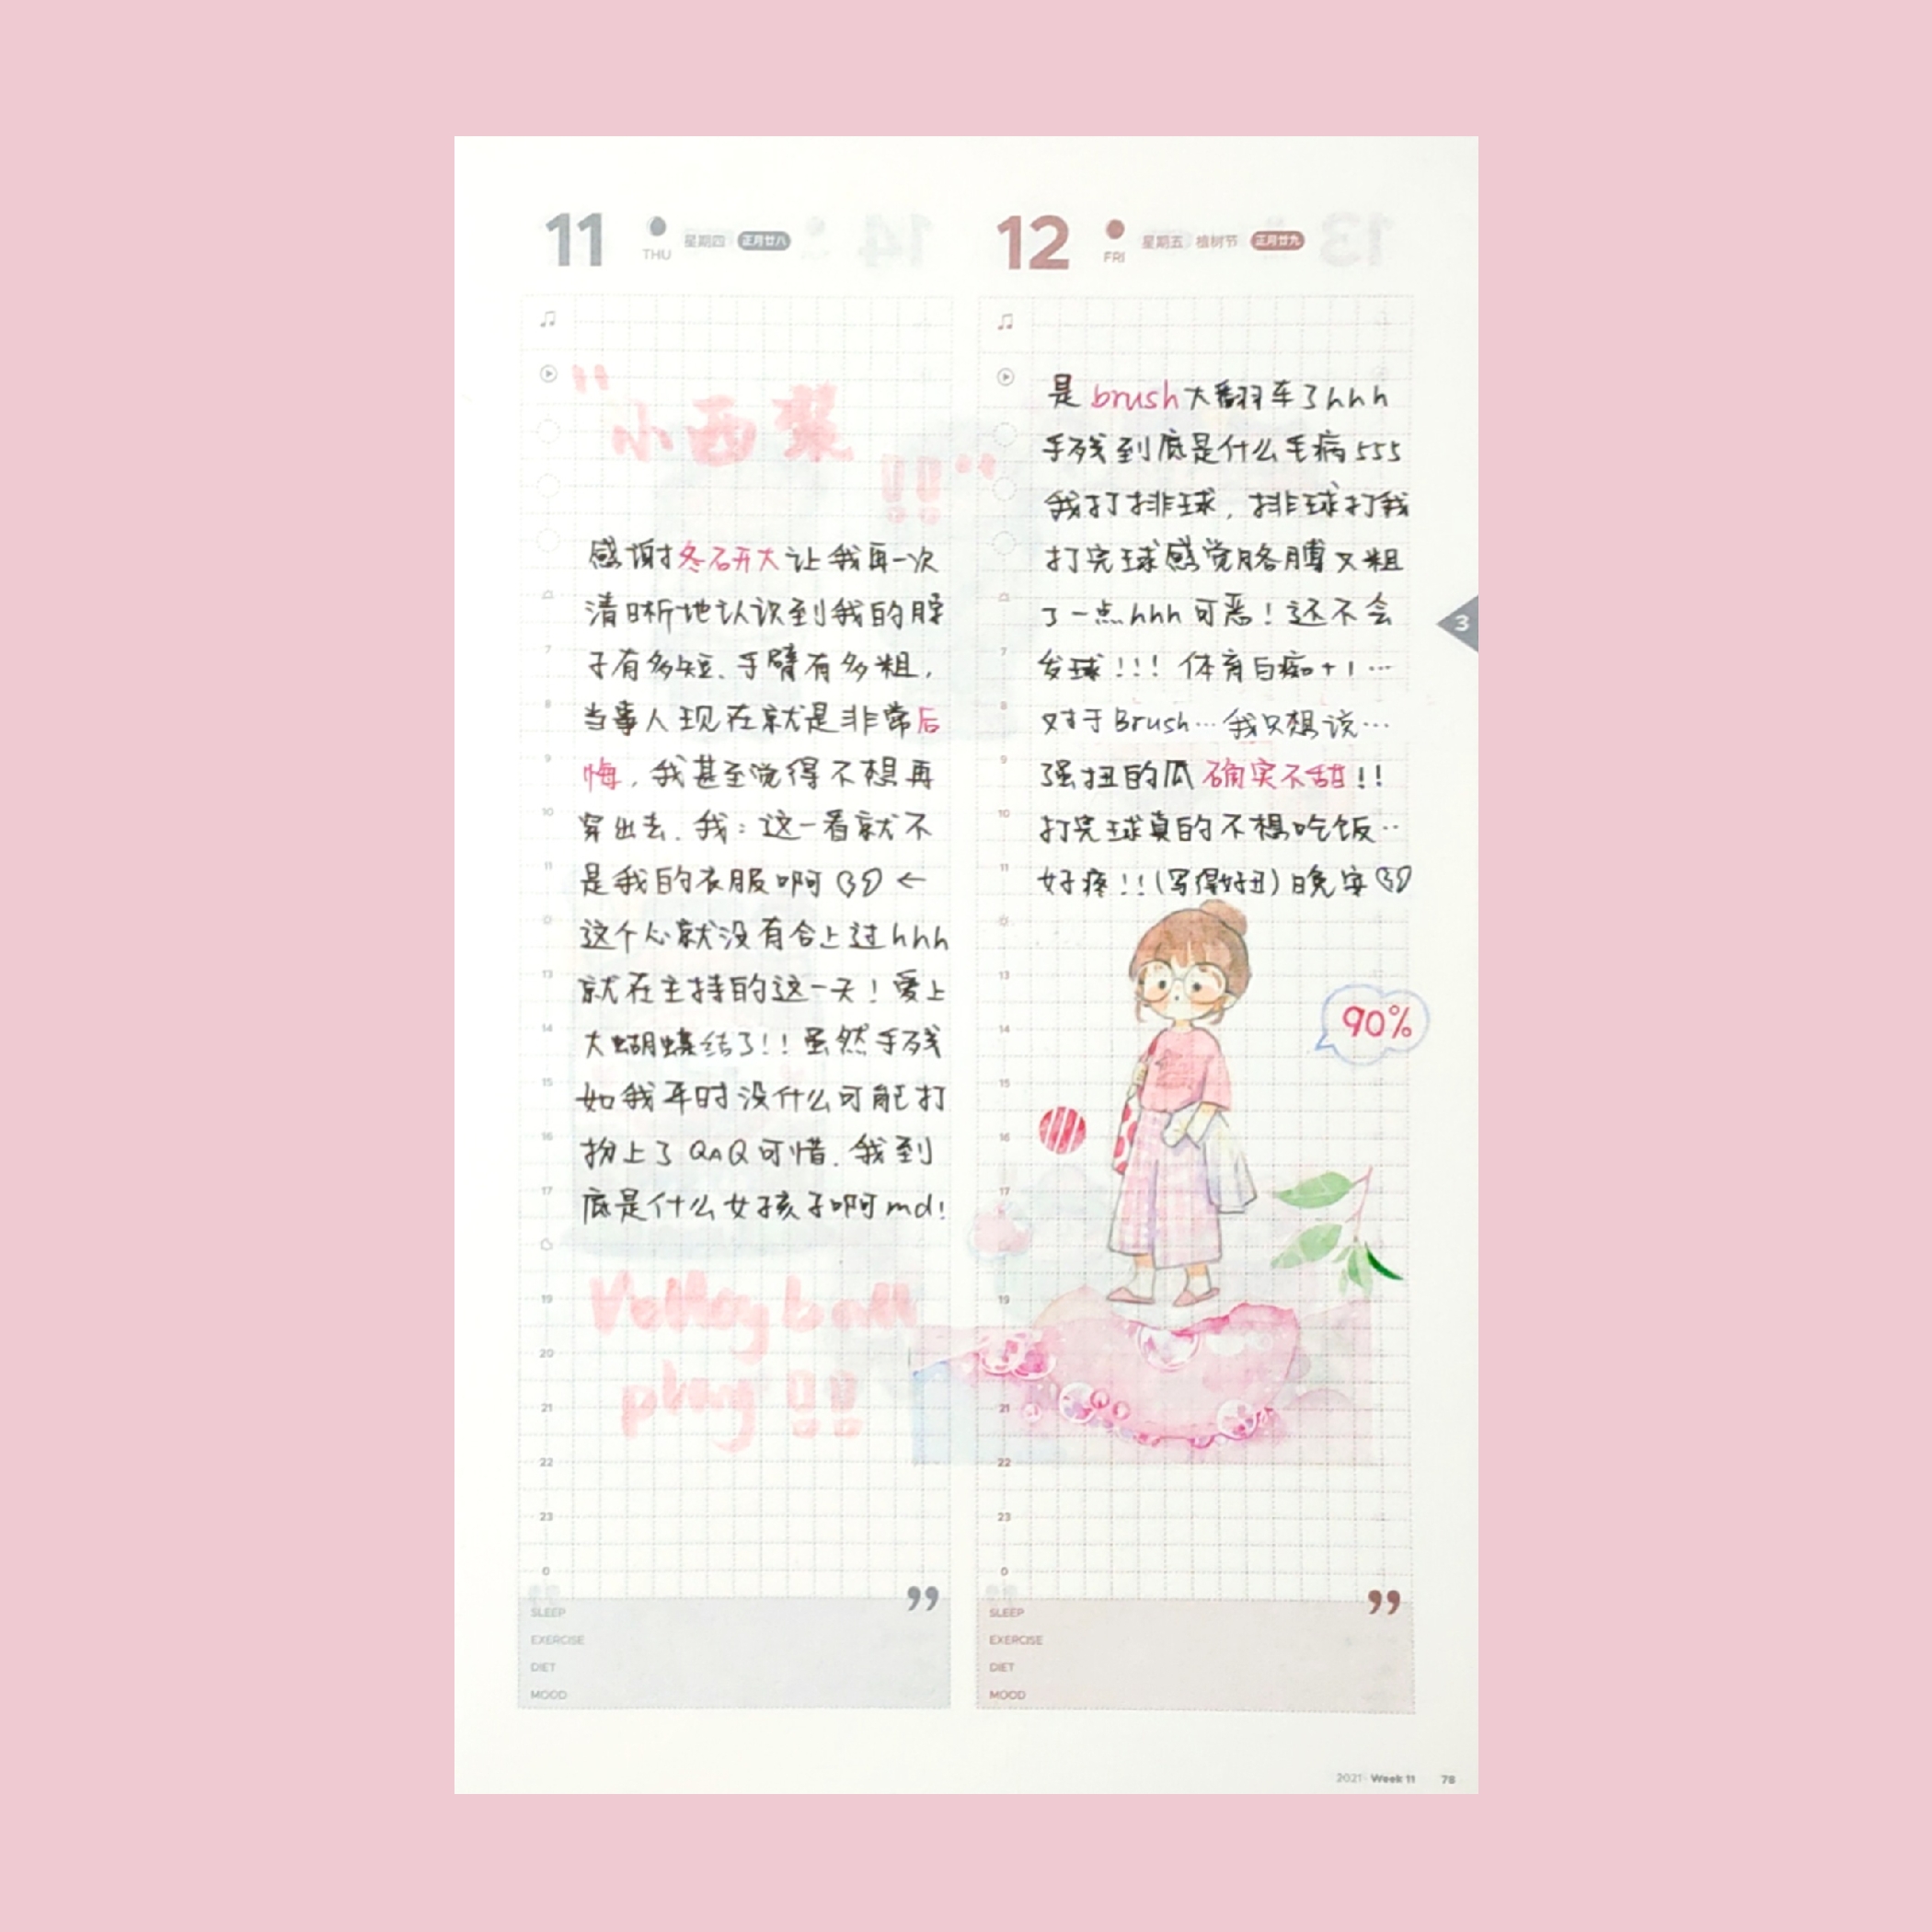 11
THU
星期四 正月廿八
"小西装!!"
感谢冬石开大让我再一次
清晰地认识到我的脖
子有多短.手臂有多粗,
当事人现在就是非常后
悔,我甚至觉得不想再
穿出去.我:这一看就不
是我的衣服啊 ←
这个心就没有合上过hhh
就在主持的这一天!爱上
大蝴蝶结了!!虽然手残
如我平时没什么可能打
扮上了QAQ可惜.我到
底是什么女孩子啊md!
Volleyball
play!!
7
8
9
10
11
13
14
15
16
17
19
20
21
22
23
0
SLEEP
EXERCISE
DIET
MOOD
12
FRI
星期五 植树节 正月廿九
是brush大翻车了hhh
手残到底是什么毛病555
我打排球,排球打我
打完球感觉胳膊又粗
了一点hhh可恶!还不会
发球!!!体育白痴+1…
对于Brush…我只想说…
强扭的瓜确实不甜!!
打完球真的不想吃饭..
好疼!!(写得好丑)晚安
90%
7
8
9
10
11
13
14
15
16
17
19
21
22
23
0
SLEEP
EXERCISE
DIET
MOOD
3
2021 · Week 11 78